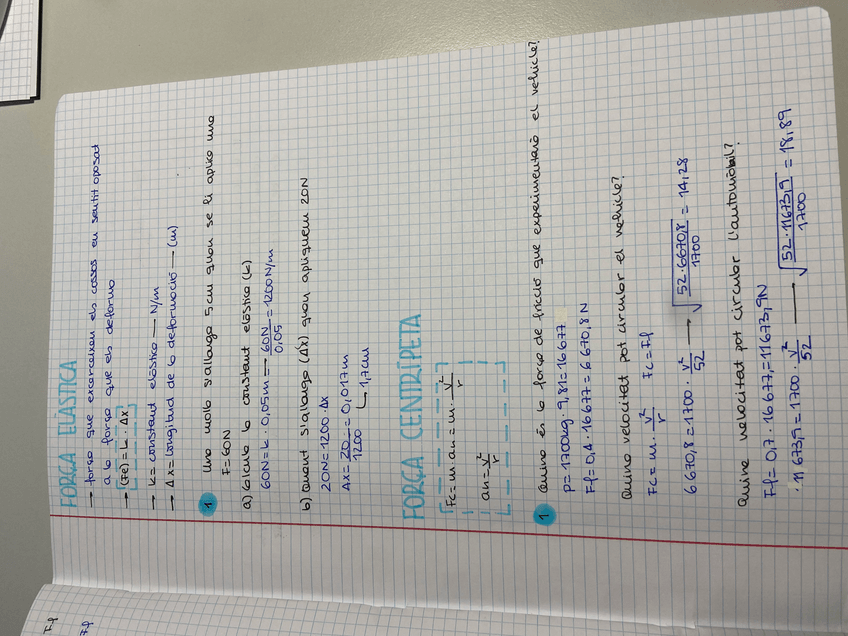 FORÇA ELÀSTICA
→ força que excerceixen els cossos en sentit oposat
a la força que els deforma
→ (Fe) = k · Δx
→ k = constant elàstica — N/m
→ Δx = longitud de la deformació — (m)
1 Una molla s'allarga 5cm quan se li aplica una
F = 60N
a) Calcula la constant elàstica (k)
60N = k · 0,05m = 60N/0,05 = 1200N/m
b) Quant s'allarga (Δx) quan apliquem 20N
20N = 1200 · Δx
Δx = 20/1200 = 0,017m
↳ 1,7cm
FORÇA CENTRÍPETA
Fc = m · an = m · v²/r
an = v²/r
1 Quina és la força de fricció que experimentarà el vehicle?
P = 1700kg · 9,81 = 16677
Ff = 0,4 · 16677 = 6670,8N
Quina velocitat pot circular el vehicle?
Fc = m · v²/r Fc = Ff
6670,8 = 1700 · v²/52 → √52·6670,8/1700 = 14,28
Quina velocitat pot circular l'automòbil?
Ff = 0,7 · 16677, = 11673,9N
· 11673,9 = 1700 · v²/52 → √52·11673,9/1700 = 18,89
Ff